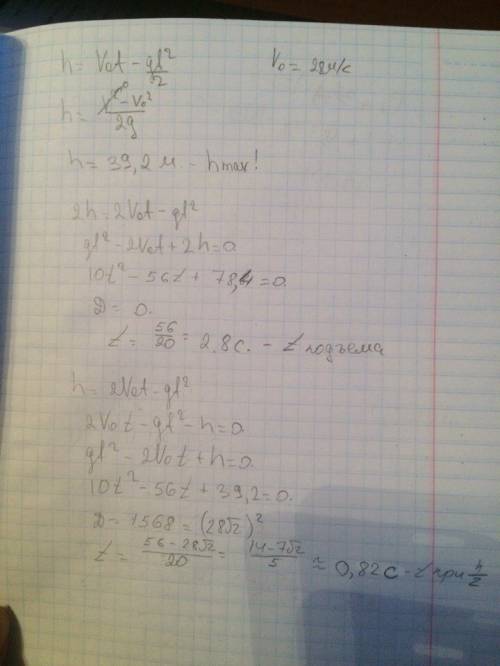 h = V₀t − gt²/2    V₀ = 28м/с
h = (V² − V₀²)/2g
h = 39,2 м - hmax!
2h = 2V₀t − gt²
gt² − 2V₀t + 2h = 0
10t² − 56t + 78,4 = 0.
D = 0.
t = 56/20 = 2.8с. - t подъема
h = 2V₀t − gt²
2V₀t − gt² − h = 0
gt² − 2V₀t + h = 0.
10t² − 56t + 39,2 = 0.
D = 1568 = (28√2)²
t = (56 − 28√2)/20 = (14 − 7√2)/5 ≈ 0,82с - t при h/2